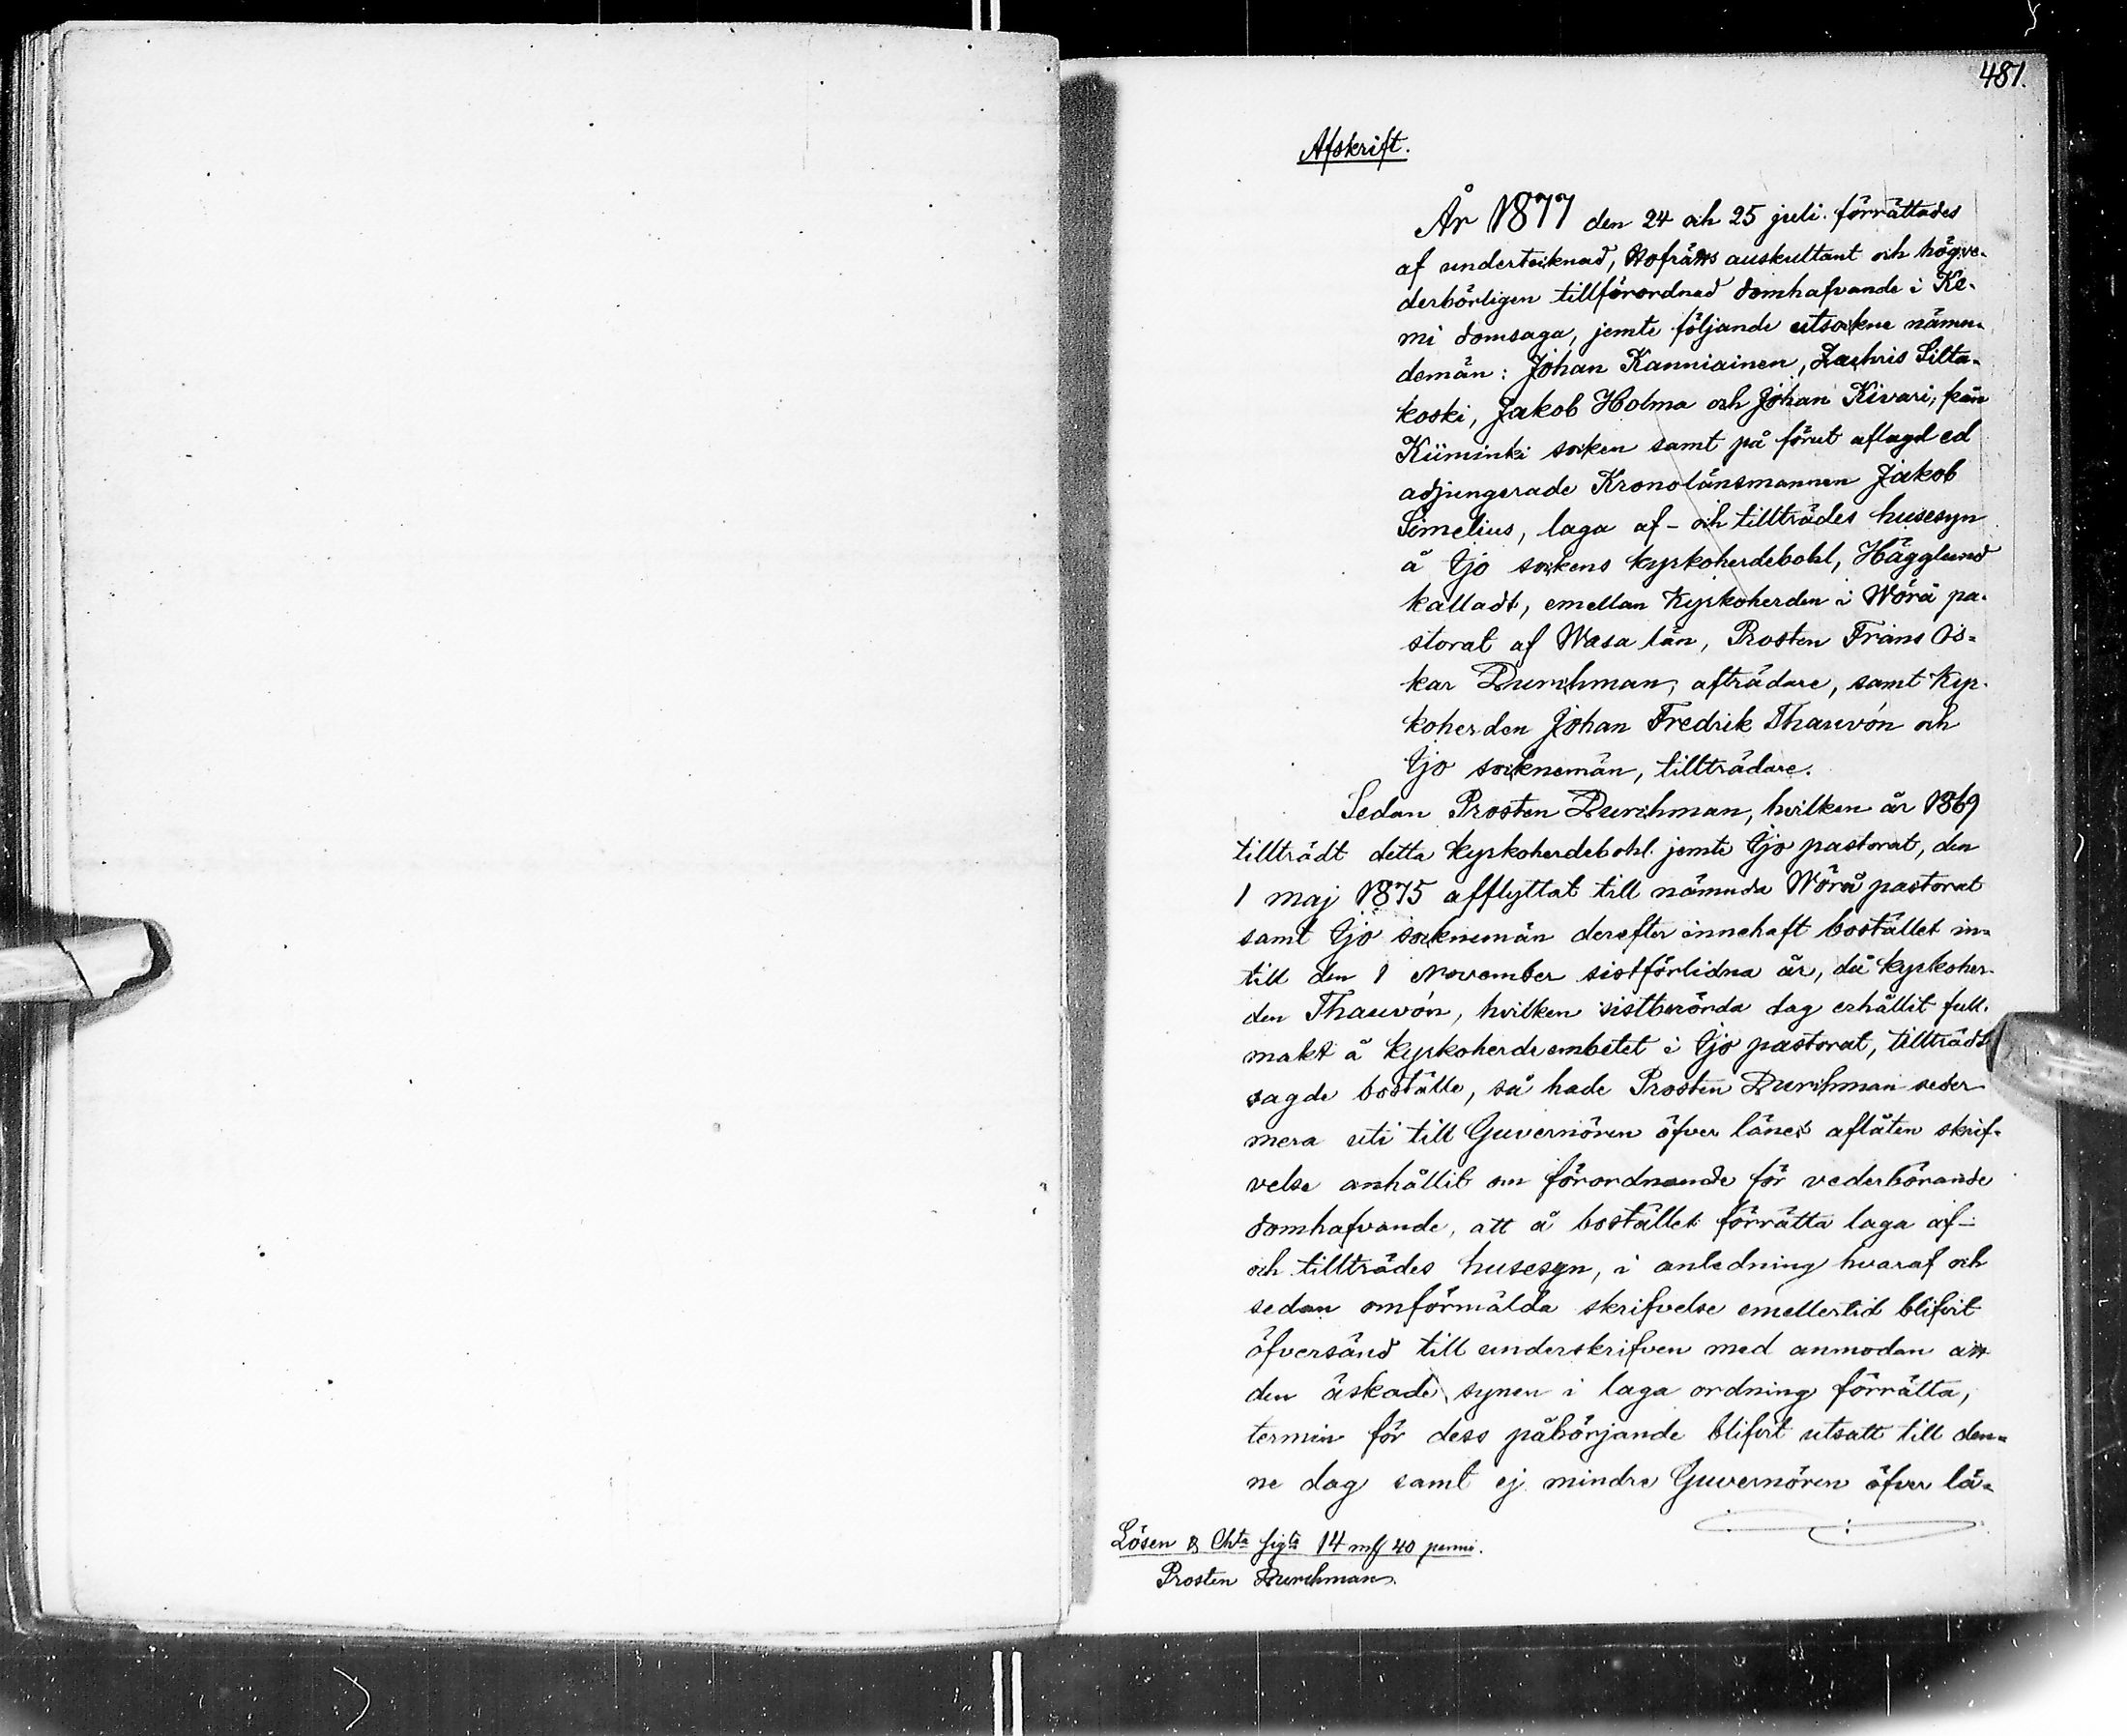 481.
Afskrift.
År 1877 den 24 och 25 juli förrättades
af undertecknad, Hofrätts auskultant och högve-
derbörligen tillförordnad domhafvande i Ke-
mi domsaga, jemte följande utsockne nämn-
demän: Johan Kanniainen, Zachris Silta-
koski, Jakob Holma och Johan Kivari, från
Kiiminki socken samt på förut aflagd ed
adjungerade Kronolänsmannen Jakob
Simelius, laga af- och tillträdes husesyn
å Ijo sockens kyrkoherdebohl, Hägglund
kalladt, emellan Kyrkoherden i Wörå pa-
storat af Wasa län, Prosten Frans Os-
kar Durchman, afträdare, samt Kyr-
koherden Johan Fredrik Thauvón och
Ijo socknemän, tillträdare.
Sedan Prosten Durchman, hvilken år 1869
tillträdt detta kyrkoherdebohl jemte Ijo pastorat, den
1 maj 1875 afflyttat till nämnda Wörå pastorat
samt Ijo socknemän derefter innehaft bostället in-
till den 1 November sistförlidna år, då kyrkoher-
den Thauvón, hvilken sistberörda dag erhållit full-
makt å kyrkoherdeembetet i Ijo pastorat, tillträdt
sagde boställe, så hade Prosten Durchman seder-
mera uti till Guvernören öfver länet aflåten skrif-
velse anhållit om förordnande för vederbörande
domhafvande, att å bostället förrätta laga af-
och tillträdes husesyn, i anledning hvaraf och
sedan omförmälda skrifvelse emellertid blifvit
öfversänd till underskrifven med anmodan att
den äskade synen i laga ordning förrätta,
termin för dess påbörjande blifvit utsatt till den-
ne dag samt ej mindre Guvernören öfver lä-
Lösen & Chta sigta 14 mk 40 penni.
Prosten Durchman.